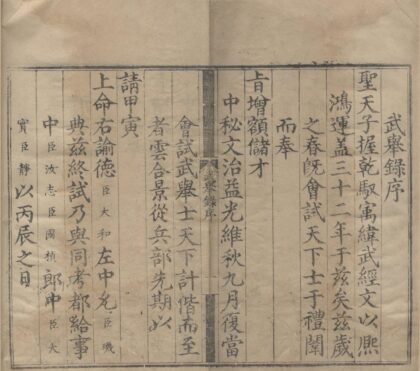 武舉錄序
聖天子握乾馭寓緯武經文以熙
鴻運蓋三十二年于兹矣兹歲
之春旣會試天下士于禮闈
而奉
旨增額儲才
中秘文治益光維秋九月復當
武舉錄序
會試武舉士天下計偕而至
者雲合景從兵部先期以
請甲寅
上命右諭德臣大和左中允臣璣
典兹終試乃與同考都給事
中臣汝志臣國楨郎中臣大
賓臣靜以丙辰之日